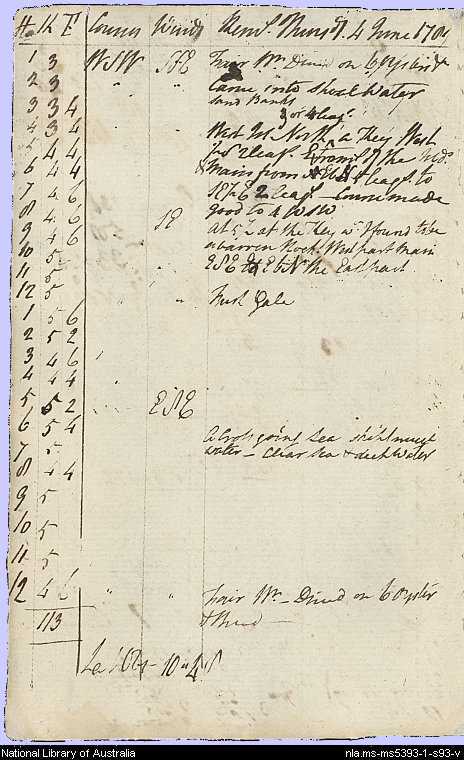 H K F Courses Winds Remks Thursdy. 4 June 1789
1 3 WSW SSE Fair Wr. Dined on 6 Oysters &
2 3 " " came into Shoal Water
Sand Banks
3 3 4 3 or 4 leags.
4 3 4 West to North, a Key West
5 4 4 2 leags. of the
6 4 4 Main from leags to
7 4 6 2 leags - Course made
8 4 6 good to 4 WSW
9 4 6 SE At 5 at the Key wh. I found to be
10 5 " " a barren Rock. West part Main
11 5 " the East part
12 5 " " Fresh Gale
1 5 6
2 5 2
3 4 6
4 4 4
5 5 2 ESE
6 5 4
7 5 A Cross going Sea shipd much
8 4 4 Water - Clear Sea & deep Water
9 5
10 5
11 5
12 4 6 " " Fair Wr. - Dined on 6 Oysters
113 & Bread
Lat 10..48 S
National Library of Australia nla.ms-ms5393-1-s93-v